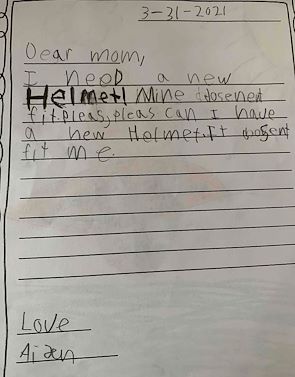 3-31-2021
Dear mom,
I neeD a new
Helmet! Mine dosenet
fit.pleas,pleas can I have
a new Helmet.It dosent
fit me.
Love
Aiden